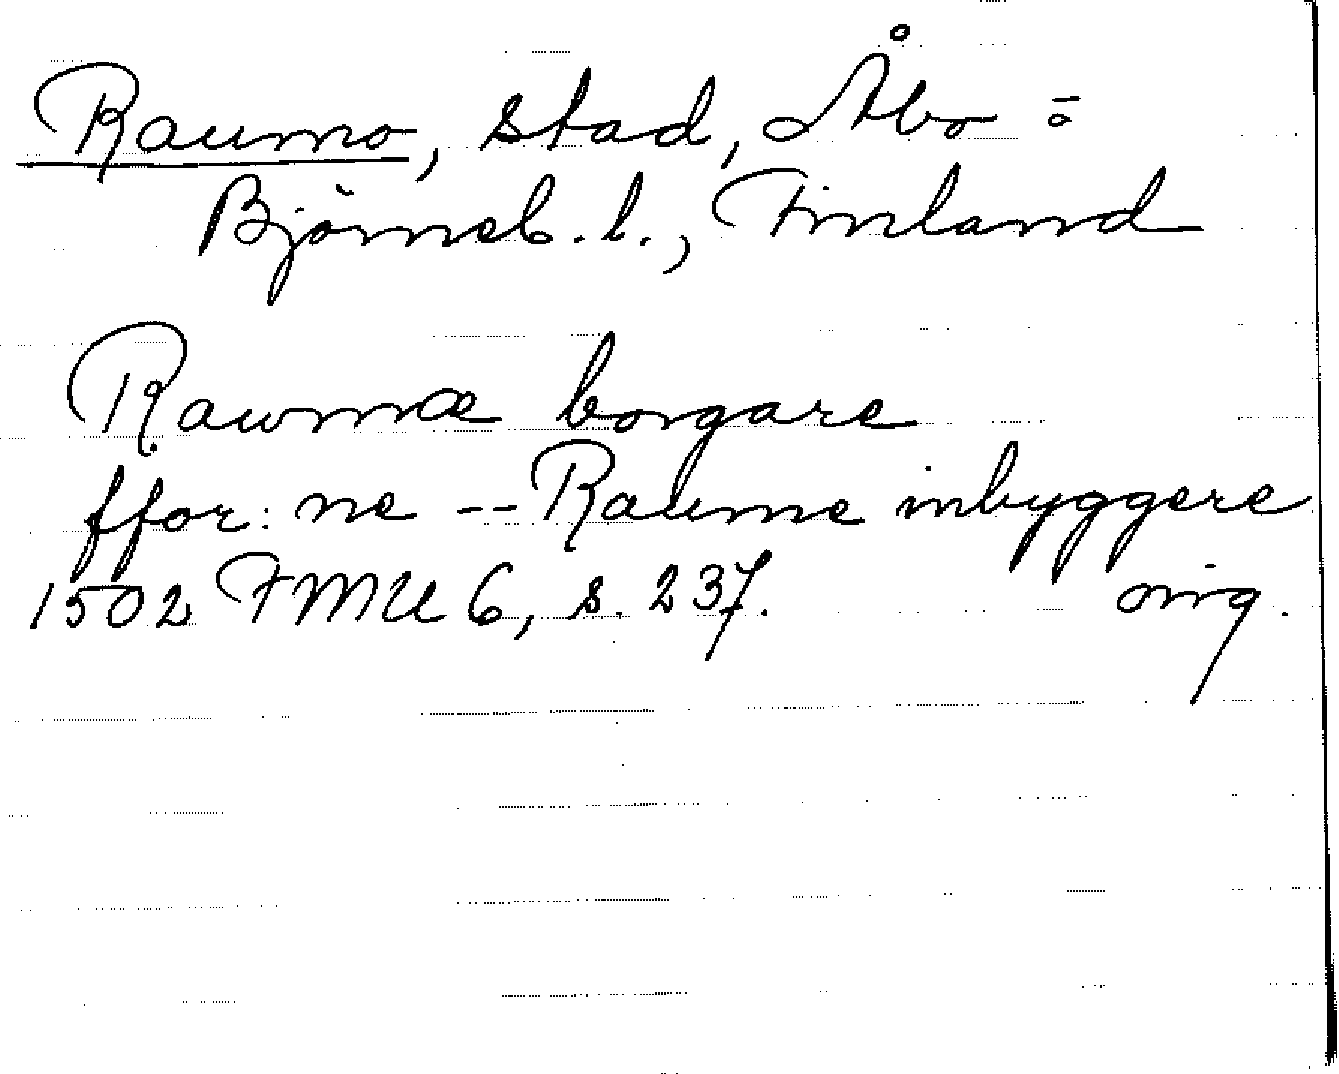 Raumo, stad, Åbo =
Björneb. l., Finland
Rawmæ borgare
ffor: ne -- Raume inbyggere
1502 FMU 6, s. 237. orig.